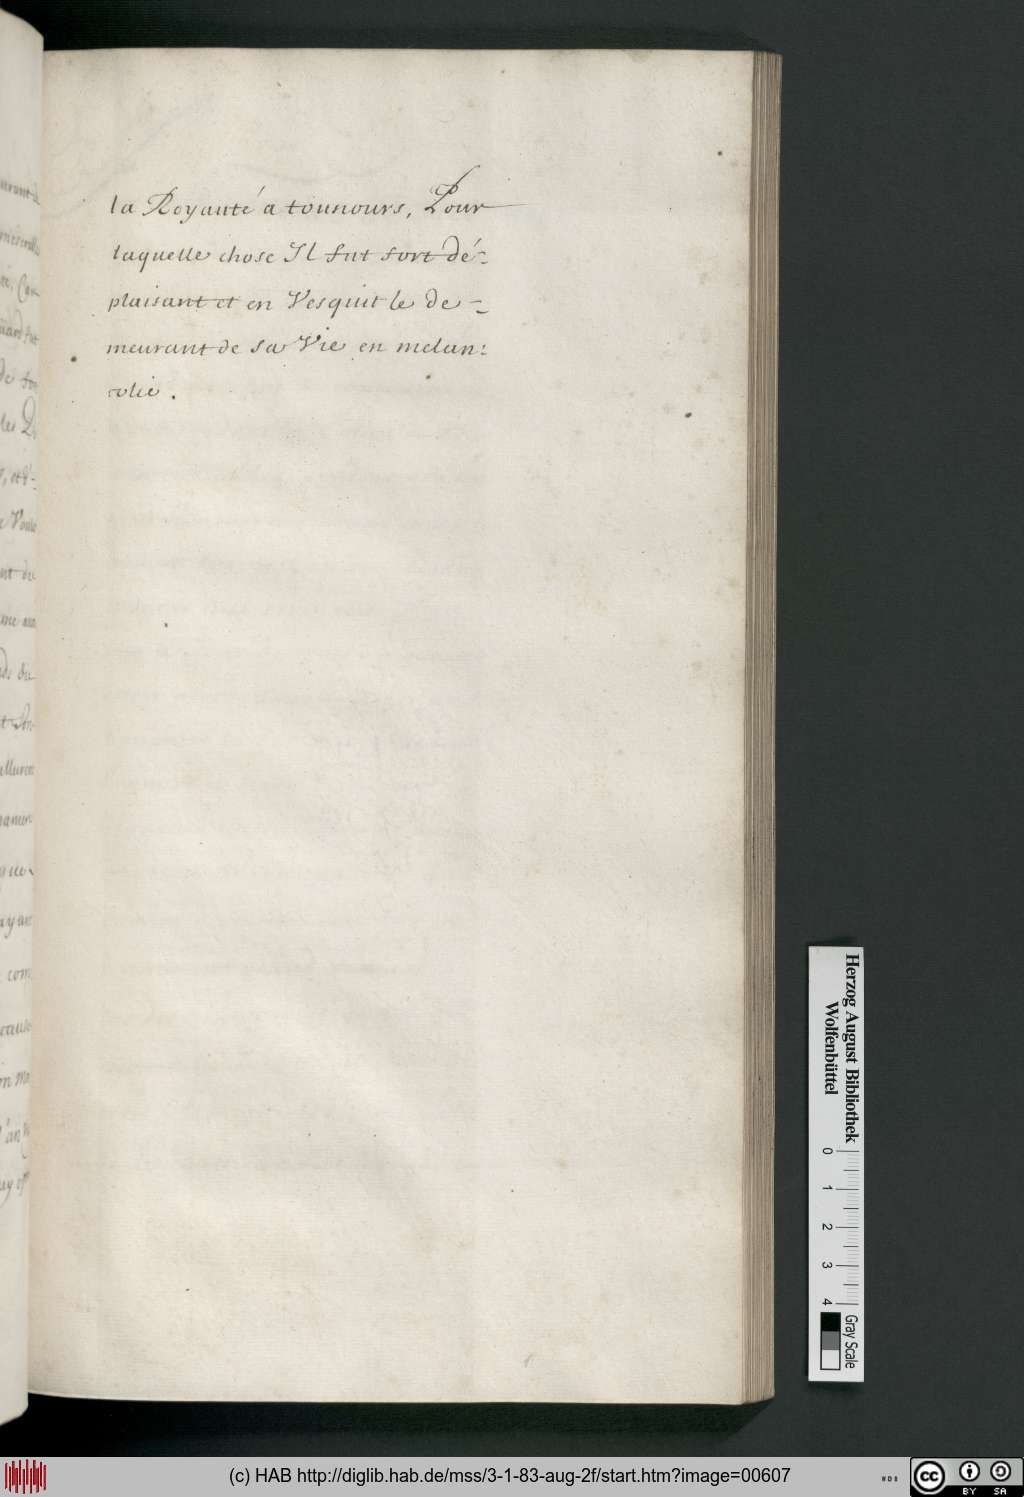 la Royauté a tousiours, Pour
laquelle chose Il fut fort dé-
plaisant et en Vesquit le de-
meurant de sa Vie en melan:
colie.
Herzog August Bibliothek
Wolfenbüttel
0 1 2 3 4
Gray Scale
(c) HAB http://diglib.hab.de/mss/3-1-83-aug-2f/start.htm?image=00607
WDB
cc BY SA